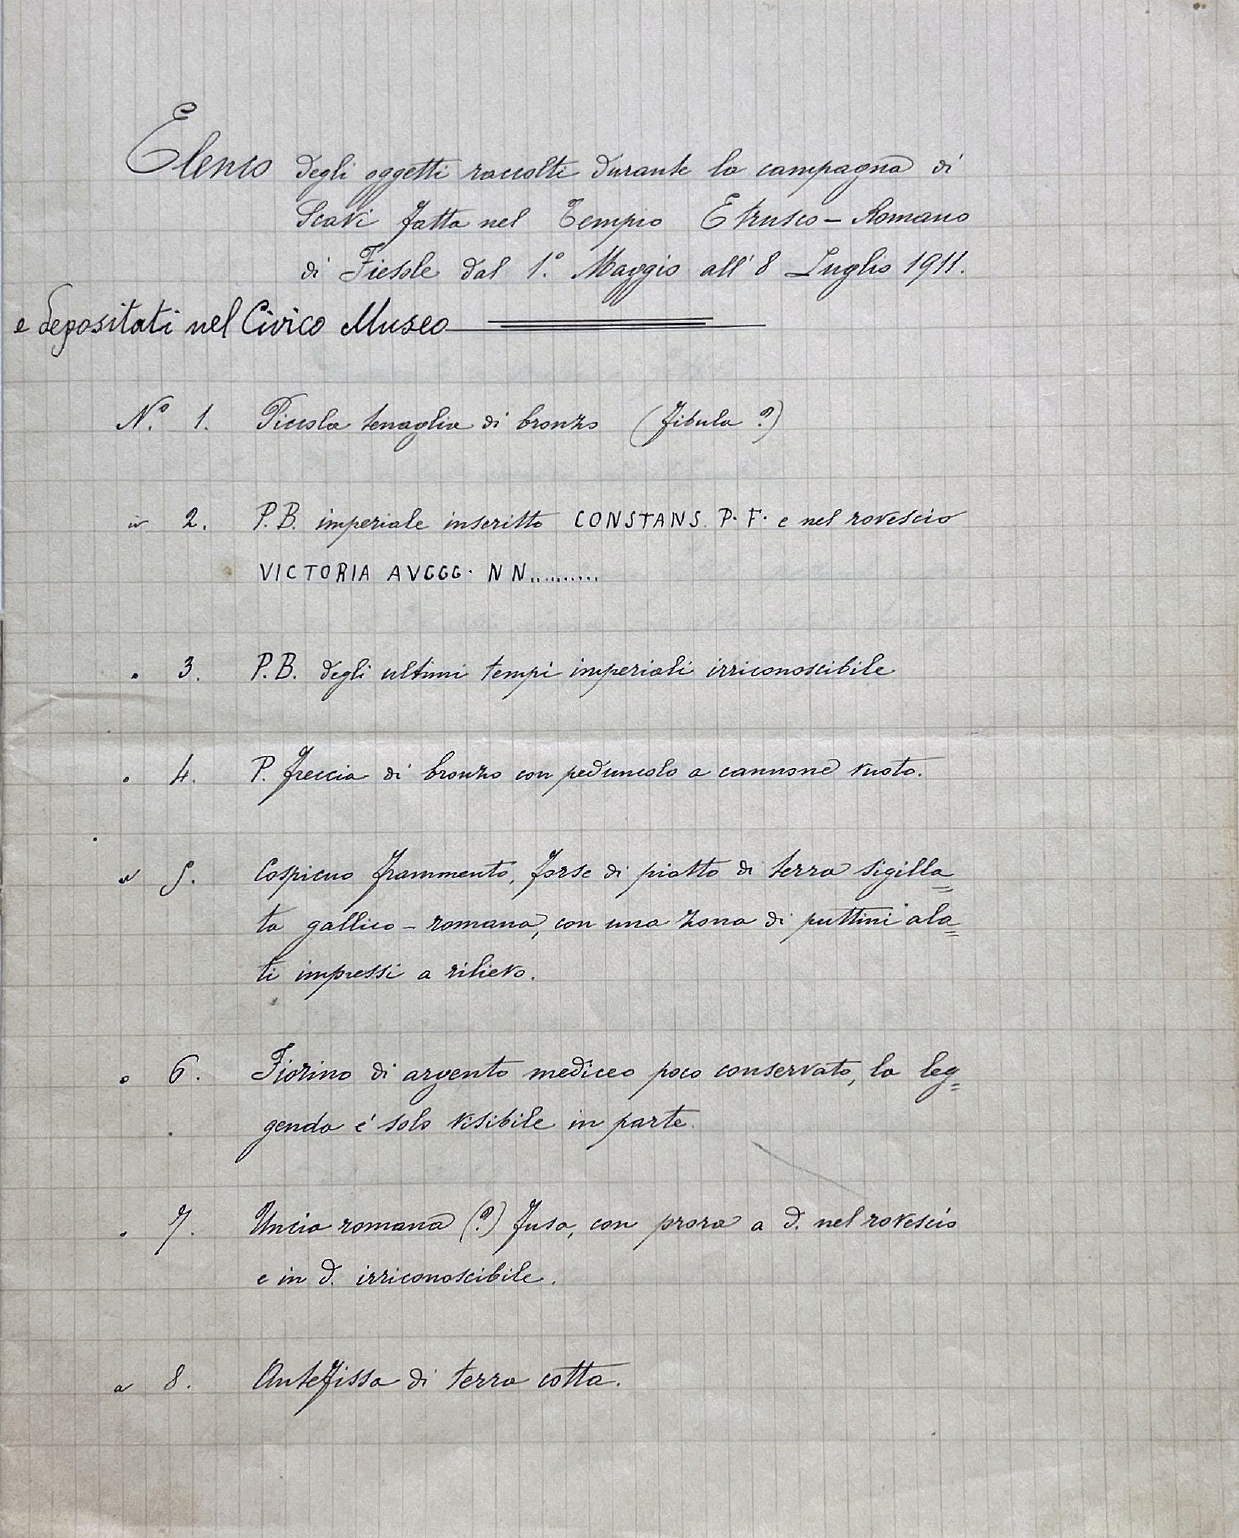 Elenco degli oggetti raccolti durante la campagna di
Scavi fatta nel Tempio Etrusco - Romano
di Fiesole dal 1.° Maggio all' 8 Luglio 1911.
e depositati nel Civico Museo
N.° 1. Piccola tenaglia di bronzo (fibula ?)
" 2. P. B. imperiale inscritto CONSTANS. P. F. e nel rovescio
VICTORIA AVGGG. NN..........
" 3. P. B. degli ultimi tempi imperiali irriconoscibile
" 4. P. freccia di bronzo con peduncolo a cannone vuoto.
" 5. Cospicuo frammento, forse di piatto di terra sigilla=
ta gallico - romana, con una zona di puttini ala=
ti impressi a rilievo.
" 6. Fiorino di argento mediceo poco conservato, la leg=
genda é solo visibile in parte.
" 7. Uncia romana (?) fusa, con prora a d. nel rovescio
e in d. irriconoscibile.
" 8. Antefissa di terra cotta.